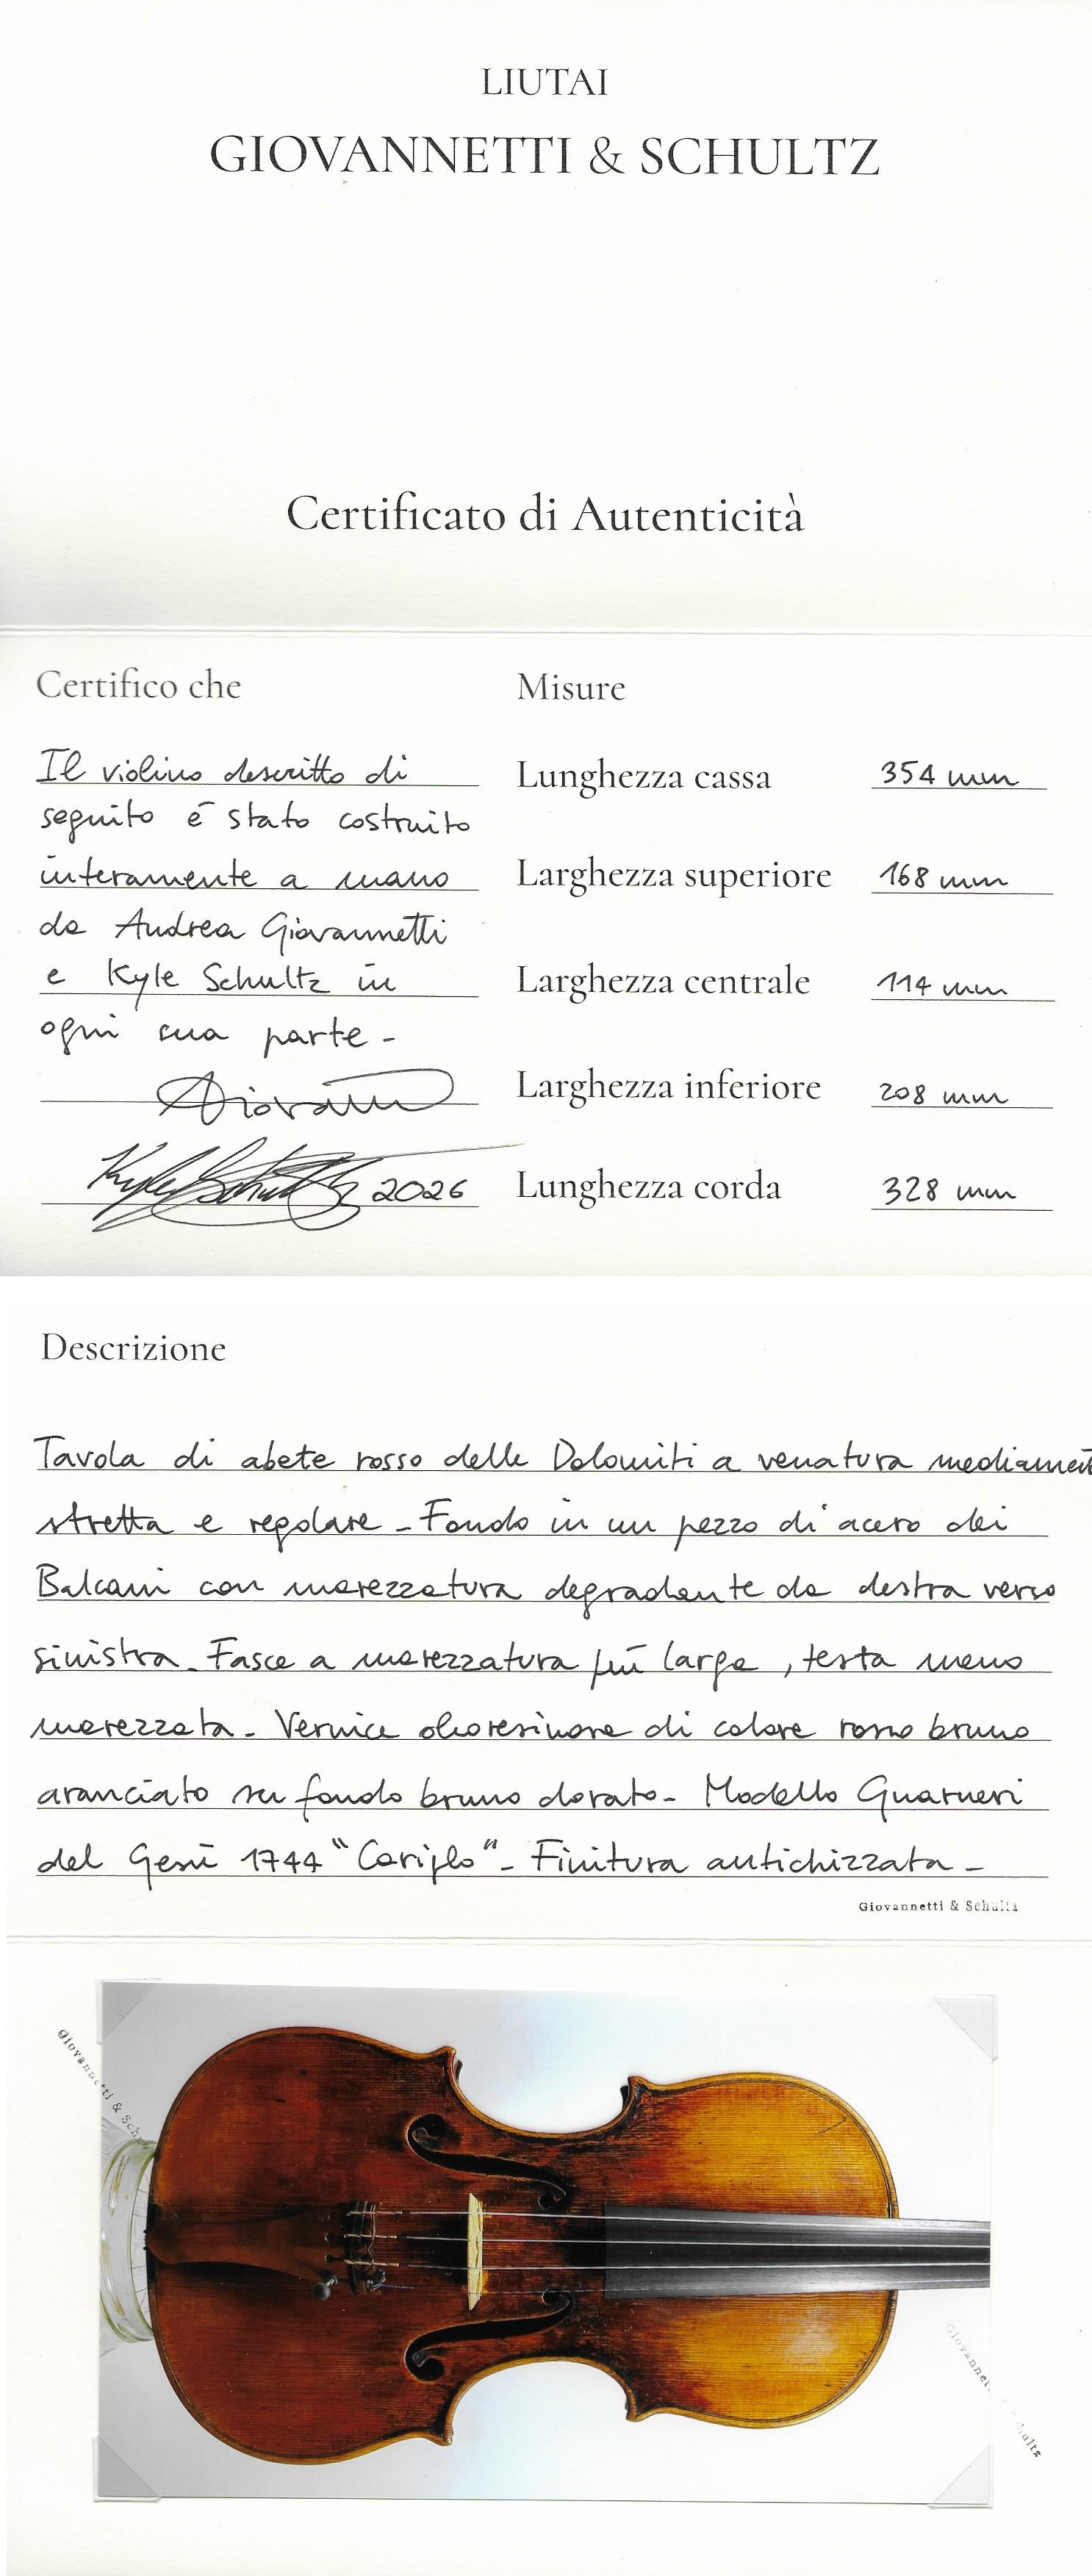 LIUTAI
GIOVANNETTI & SCHULTZ
Certificato di Autenticità
Certifico che
Il violino descritto di
seguito è stato costruito
interamente a mano
da Andrea Giovannetti
e Kyle Schultz in
ogni sua parte -
Kyle Schultz 2026
Misure
Lunghezza cassa 354 mm
Larghezza superiore 168 mm
Larghezza centrale 114 mm
Larghezza inferiore 208 mm
Lunghezza corda 328 mm
Descrizione
Tavola di abete rosso delle Dolomiti a venatura mediament
stretta e regolare - Fondo in un pezzo di acero dei
Balcani con marezzatura degradante da destra verso
sinistra - Fasce a marezzatura più larga, testa meno
marezzata - Vernice oleoresinosa di colore rosso bruno
aranciato su fondo bruno dorato - Modello Guarneri
del Gesù 1744 "Cariplo" - Finitura antichizzata -
Giovannetti & Schultz
Giovannetti & Sch
Giovannet & hultz